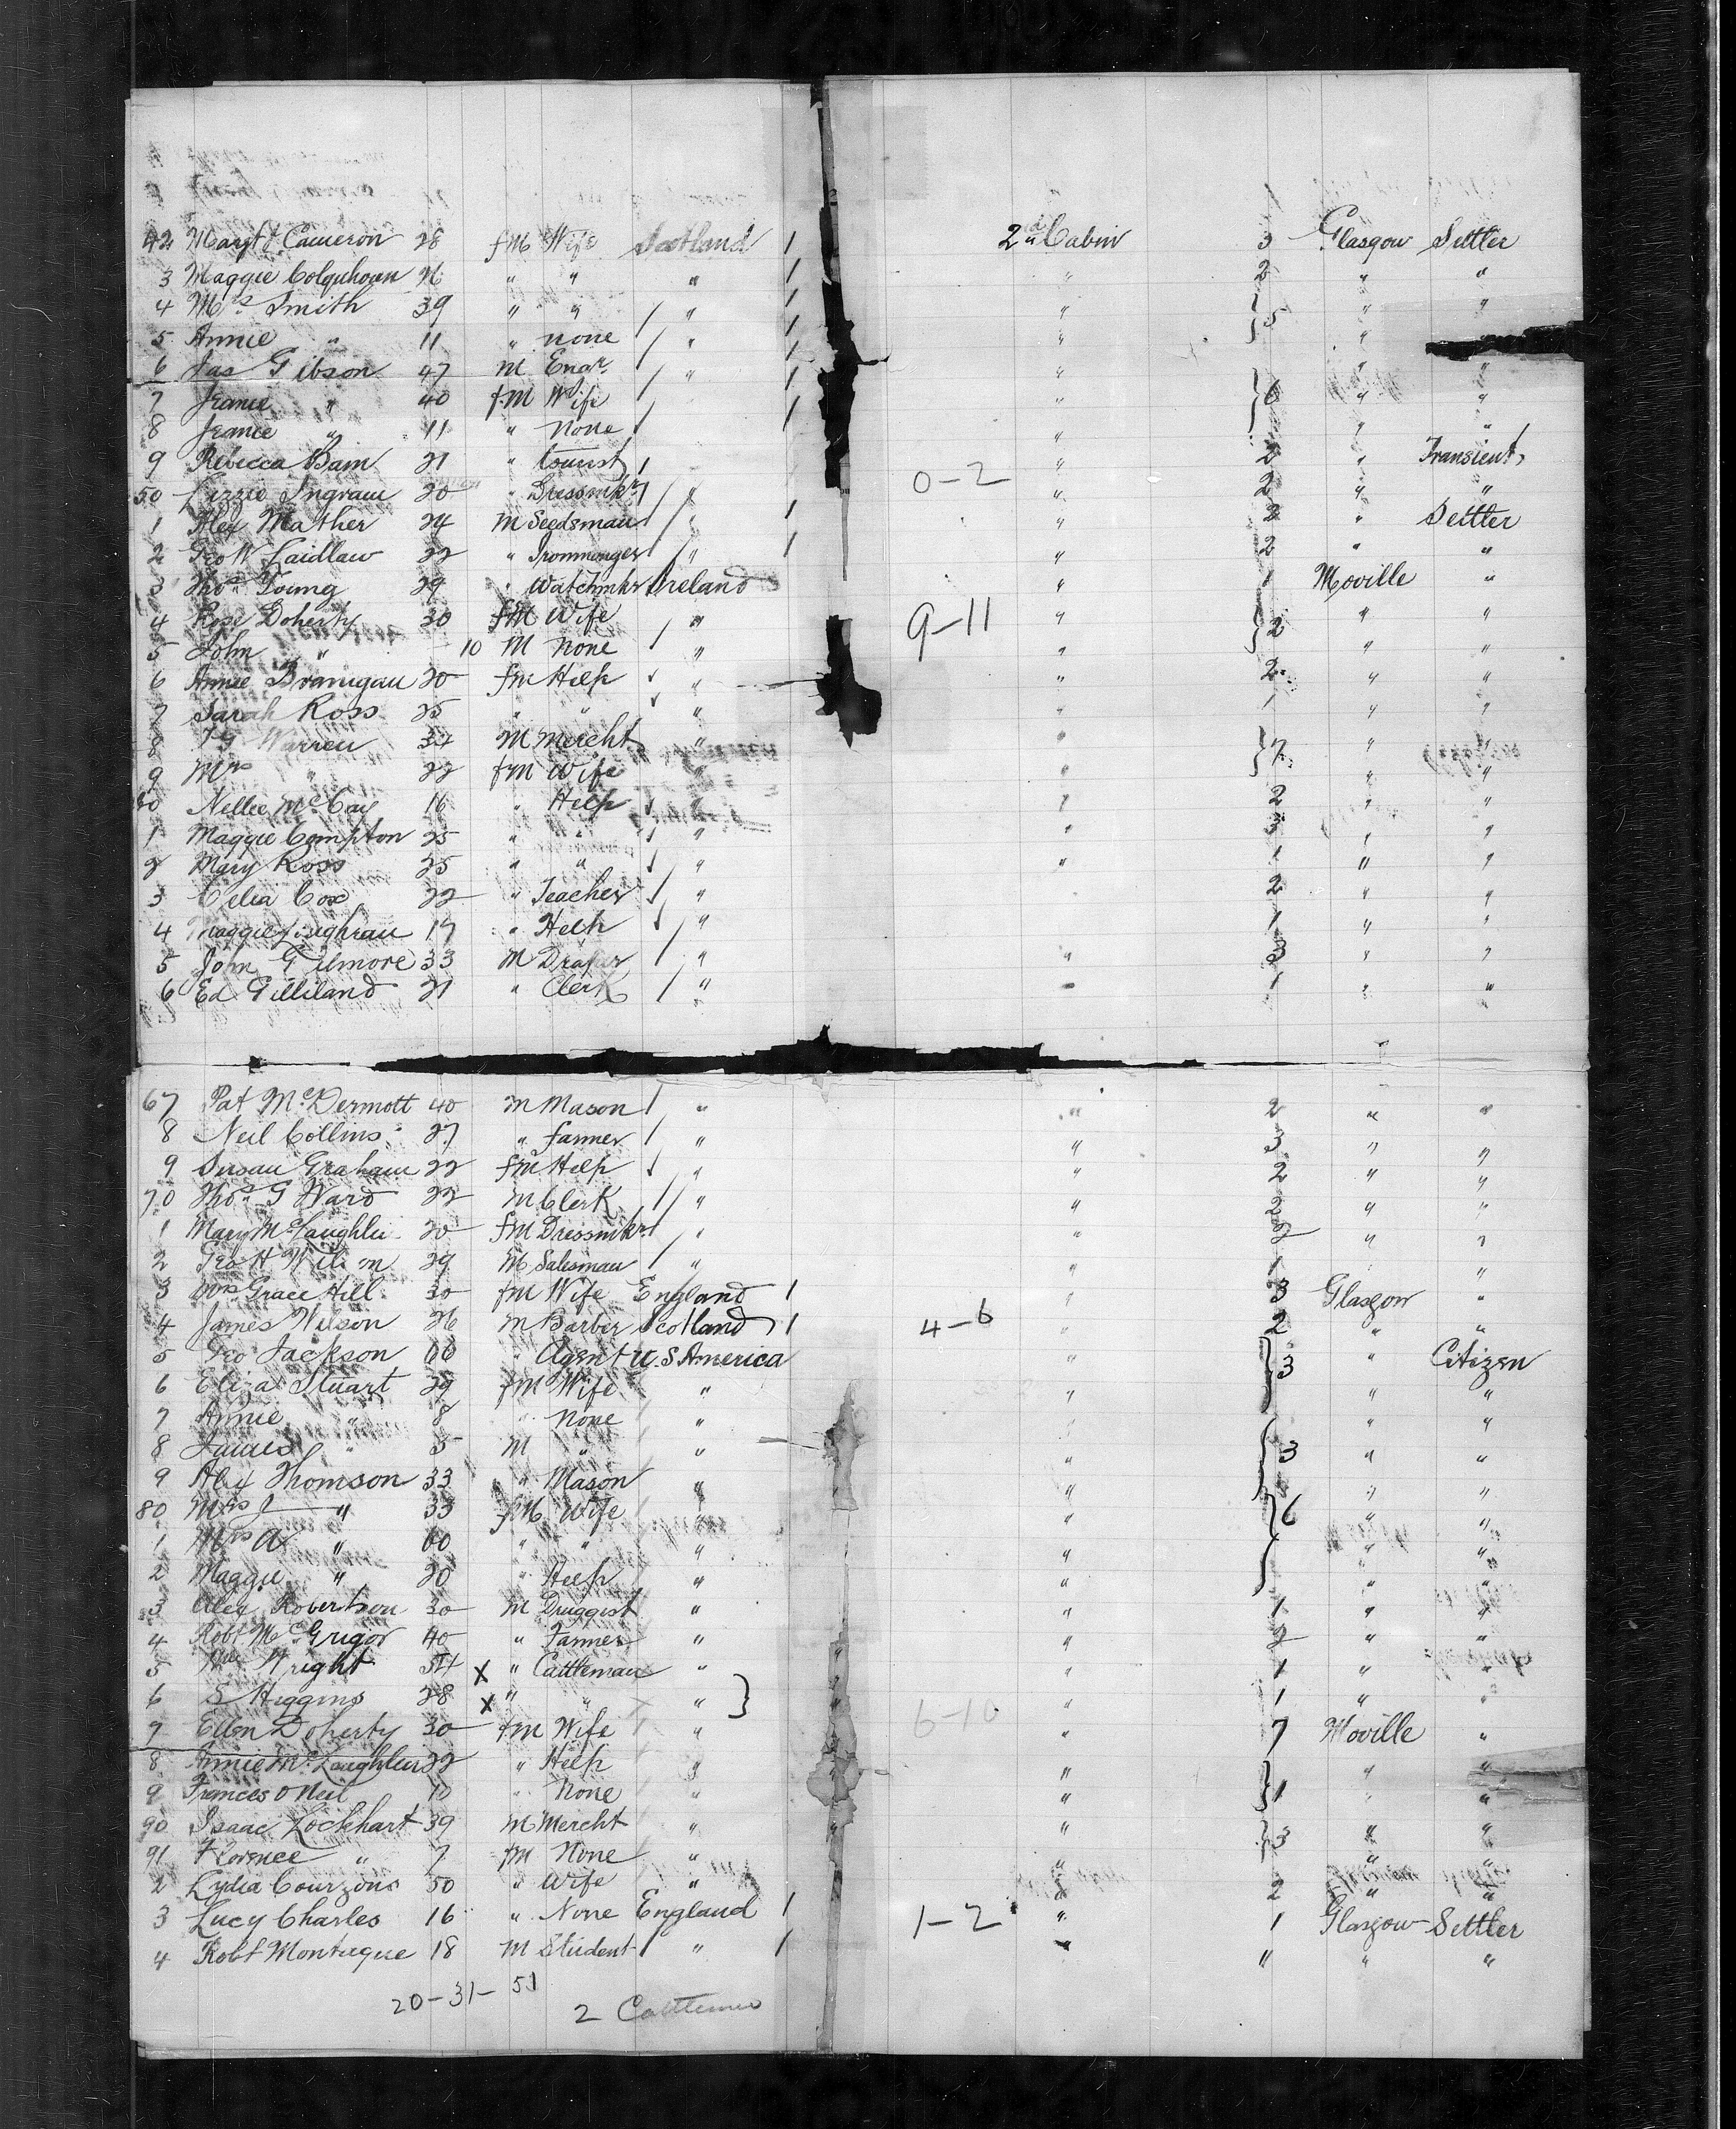 42 Margt Cameron 28 fM Wife Scotland 1 2d Cabin 3 Glasgow Settler
3 Maggie Colquhoun 26 " " " 1 " 2 " "
4 Mrs Smith 39 " " / " 1 " } 5 " "
5 Annie " 11 " none / " 1 " "
6 Jas Gibson 47 M Engr / " 1 " " "
7 Jeanie " 40 fM Wife / 1 " } 6 " "
8 Jeanie " 11 " none / 1 " " "
9 Rebecca Bain 21 " tourist / " 2 " Transient
50 Lizzie Ingram 20 " Dressmkr / " 0-2 " 2 " "
1 Alex Mather 24 M Seedsman / " 1 " 2 " Settler
2 Geo W Laidlaw 22 " Ironmonger / " 1 " 2 " "
3 Thos Young 29 " Watchmkr Ireland " 1 Moville "
4 Rose Doherty 30 fM Wife " 9-11 " } 2 " "
5 John " 10 M none / " " " "
6 Annie Branigan 20 fM Help / " " 2 " "
7 Sarah Ross 25 " " / " " 1 " "
8 Warren 34 M Mercht " " } 7 " "
9 Mrs " 22 fM Wife " " " "
60 Nellie McCay 16 " Help / " " 2 " "
1 Maggie Compton 25 " " / " " 3 " "
2 Mary Ross 25 " " / " " 1 " "
3 Celia Cox 22 " Teacher / " 2 " "
4 Maggie Loughran 19 " Help / " 1 " "
5 John Gilmore 33 M Draper / " " 3 " "
6 Ed Gilliland 21 " Clerk / " " 1 " "
67 Pat McDermott 40 M Mason / " " 2 " "
8 Neil Collins 27 " farmer / " " 3 " "
9 Susan Graham 22 fM Help / " " 2 " "
70 Thos G Ward 22 M Clerk / " " 2 " "
1 Mary McLaughlin 20 fM Dressmkr / " " 2 " "
2 Geo H Wilson 29 M Salesman / " " 1 " "
3 Mrs Grace Hill 30 fM Wife England 1 " 3 Glasgow "
4 James Wilson 26 M Barber Scotland 1 4-6 " 2 " "
5 Geo Jackson 66 " Agent U.S America " } 3 " Citizen
6 Eliza Stuart 29 fM Wife " " " "
7 Annie " 8 " none " " "
8 James " 5 M " " " } 3 " "
9 Alex Thomson 33 " Mason " " " "
80 Mrs J " 33 fM Wife " " } 6 " "
1 Mrs A " 60 " " " " " "
2 Maggie " 20 " Help " " " "
3 Alex Robertson 30 M Druggist " " 1 " "
4 Robt McGrigor 40 " Farmer " " 2 " "
5 Wm Wright 54 X " Cattleman " " 1 " "
6 S Higgins 28 X " " " } " 1 " "
7 Ellen Doherty 30 fM Wife " 6-10 " 7 Moville "
8 Annie McLaughlin 22 " Help " " " "
9 Frances O Neil 10 " None " " } 1 " "
90 Isaac Lockhart 39 M Mercht " " " "
91 Florence " 7 fM None " " } 3 " "
2 Lydia 50 " Wife " " 2 " "
3 Lucy Charles 16 " None England 1 1-2 " 1 Glasgow Settler
4 Robt Montague 18 M Student / " 1 " " " "
20-31-51
2 Cattlemen